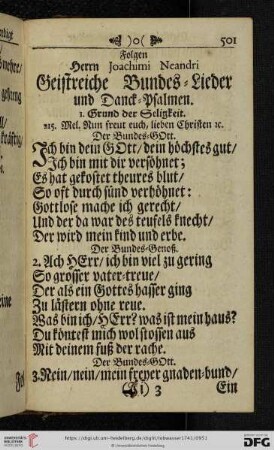 )o( 501
Folgen
Herrn Joachimi Neandri
Geistreiche Bundes-Lieder
und Danck-Psalmen.
1. Grund der Seligkeit.
215. Mel. Nun freut euch, lieben Christen ꝛc.
Der Bundes-GOtt.
Ich bin dein GOtt/ dein höchstes gut/
Ich bin mit dir versöhnet;
Es hat gekostet theures blut/
So oft durch sünd verhöhnet:
Gottlose mache ich gerecht/
Und der da war des teufels knecht/
Der wird mein kind und erbe.
Der Bundes-Genoß.
2. Ach HErr/ ich bin viel zu gering
So grosser vater-treue/
Der als ein Gottes hasser ging
Zu lästern ohne reue.
Was bin ich/ HErr? was ist mein hauß?
Du köntest mich wol stossen aus
Mit deinem fuß der rache.
Der Bundes-GOtt.
3. Nein/ nein/ mein freyer gnaden-bund/
3 Ein